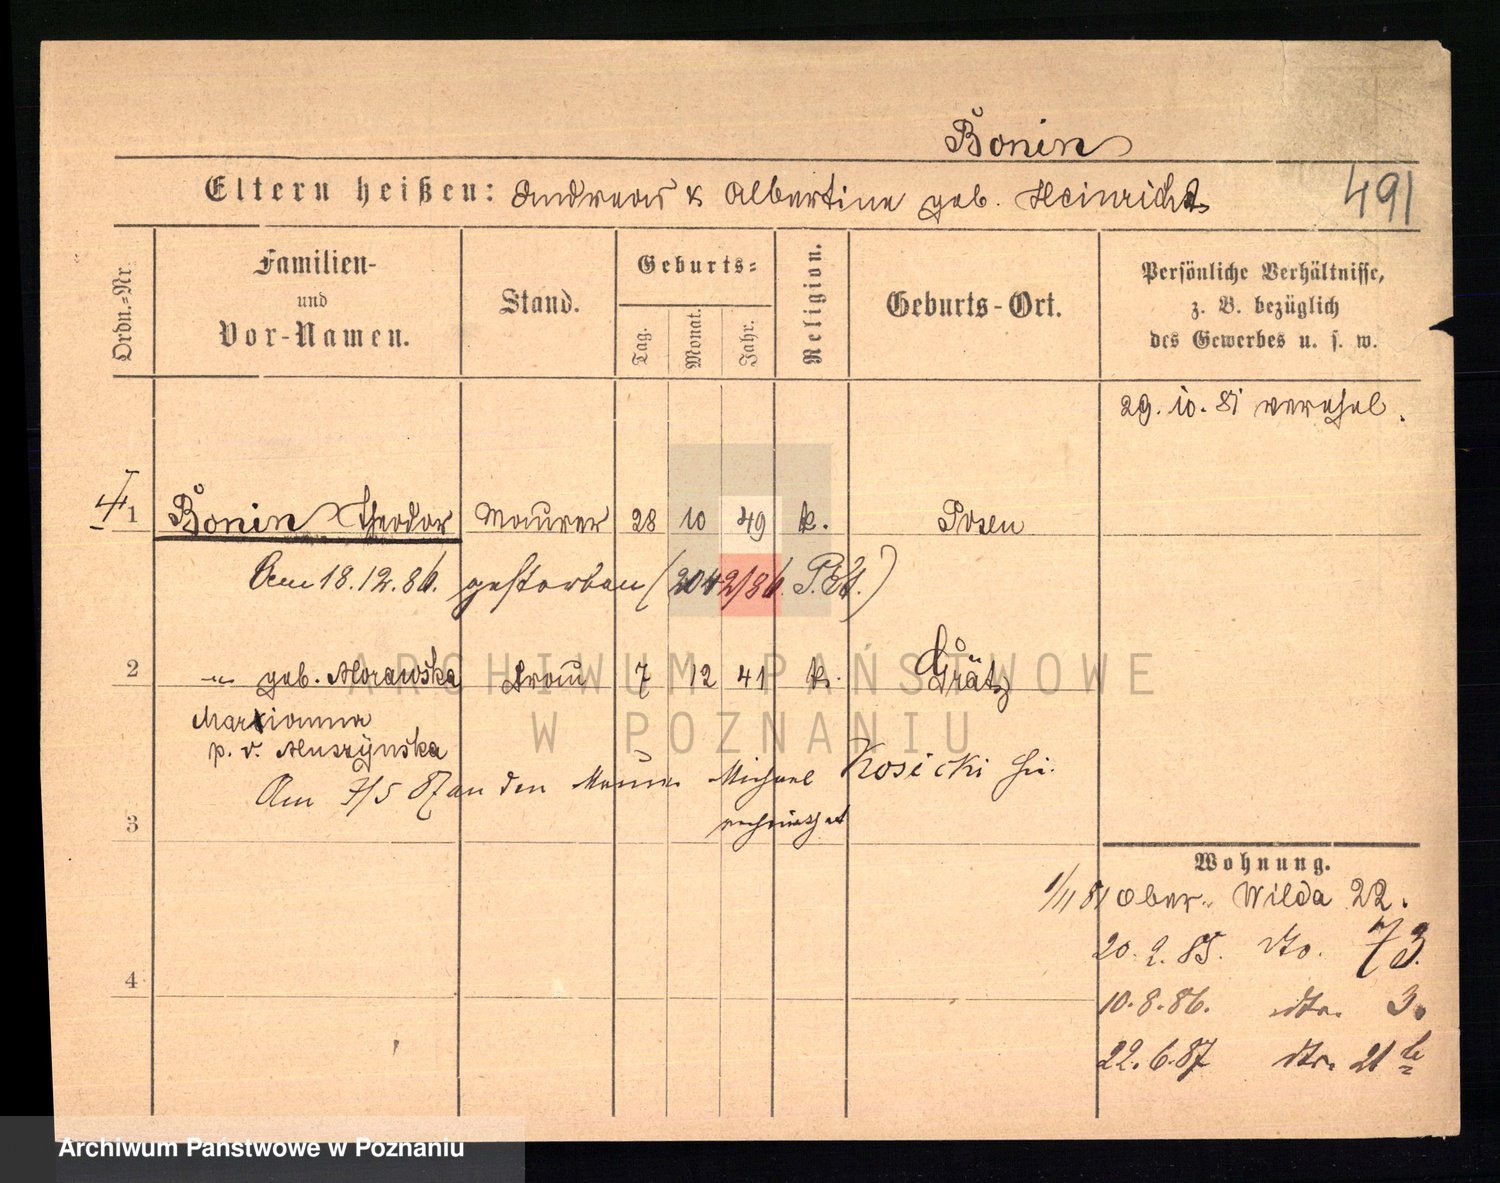 Bonin
Eltern heißen: Andreas & Albertine geb. Heinrich
491
Ordn.=Nr.
Familien- und Vor-Namen.
Stand.
Geburts=
Tag.
Monat.
Jahr.
Religion.
Geburts-Ort.
Persönliche Verhältnisse, z. B. bezüglich des Gewerbes u. s. w.
29. 10. 81 verehel.
1 Bonin Theodor Maurer 28 10 49 k. Posen
Am 18.12.86. gestorben (2042/86. P.St.)
2 " geb. Morawska Frau 7 12 41 k. Grätz
Marianna
p. v. Muszyńska
Am 7/5 87 an den Maurer Michael Kosicki
verheirathet
3
4
Wohnung.
1/11 81 Ober- Wilda 22.
20. 2. 85. dto. 73.
10. 8. 86. dto. 3.
22. 6. 87 dto. 21
ARCHIWUM PAŃSTWOWE
W POZNANIU
Archiwum Państwowe w Poznaniu